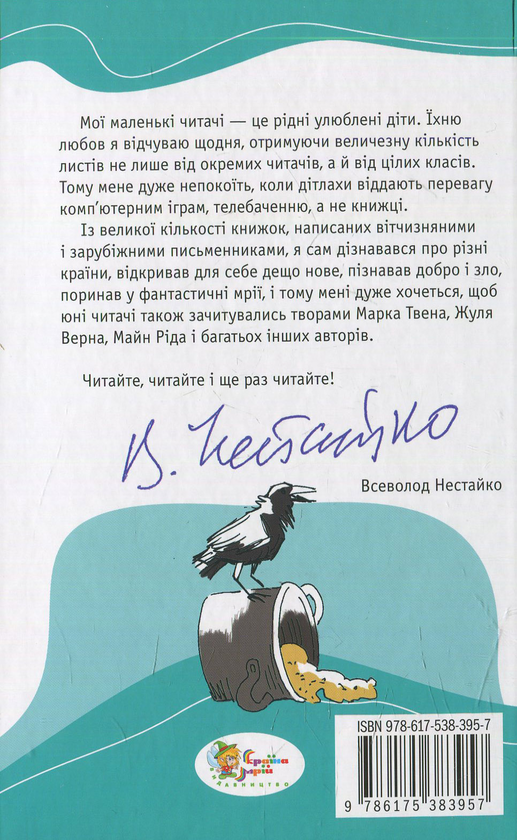 Мої маленькі читачі — це рідні улюблені діти. Їхню
любов я відчуваю щодня, отримуючи величезну кількість
листів не лише від окремих читачів, а й від цілих класів.
Тому мене дуже непокоїть, коли дітлахи віддають перевагу
комп'ютерним іграм, телебаченню, а не книжці.
Із великої кількості книжок, написаних вітчизняними
і зарубіжними письменниками, я сам дізнавався про різні
країни, відкривав для себе дещо нове, пізнавав добро і зло,
поринав у фантастичні мрії, і тому мені дуже хочеться, щоб
юні читачі також зачитувались творами Марка Твена, Жуля
Верна, Майн Ріда і багатьох інших авторів.
Читайте, читайте і ще раз читайте!
В. Нестайко
Всеволод Нестайко
ISBN 978-617-538-395-7
9 786175 383957
Країна
мрій
видавництво